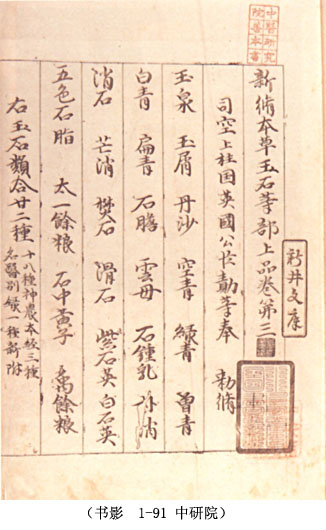 新脩本草玉石等部上品卷第三
司空上柱国英國公臣勣等奉 勅脩
玉泉 玉屑 丹沙 空青 綠青 曽青
白青 扁青 石膽 雲母 石鍾乳 朴消
消石 芒消 礬石 滑石 紫石英 白石英
五色石脂 太一餘粮 石中黃子 禹餘粮
右玉石類合廿二種 十八種神農本経三種
名醫別録一種新附
新井文庫
(书影 1-91 中研院)